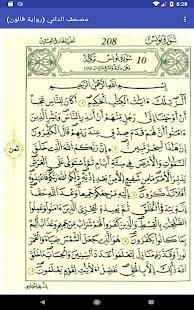 8:28
مصحف الداني (رواية قالون)
سورة يونس 208
10 سورة يونس مكية 109
بسم الله الرحمن الرحيم
ألر تلك ءايات الكتاب الحكيم أكان للناس
عجبا أن أوحينا إلى رجل منهم أن أنذر الناس وبشر الذين
ءامنوا أن لهم قدم صدق عند ربهم قال الكافرون
إن هذا لسحر مبين إن ربكم الله الذي خلق السماوات
والأرض في ستة أيام ثم استوى على العرش يدبر الأمر
ما من شفيع إلا من بعد إذنه ذلكم الله ربكم فاعبدوه
أفلا تذكرون إليه مرجعكم جميعا وعد الله حقا إنه
يبدؤا الخلق ثم يعيده ليجزي الذين ءامنوا وعملوا الصالحات
بالقسط والذين كفروا لهم شراب من حميم وعذاب أليم
بما كانوا يكفرون هو الذي جعل الشمس ضياء والقمر
نورا وقدره منازل لتعلموا عدد السنين والحساب ما خلق
الله ذلك إلا بالحق نفصل الآيات لقوم يعلمون
ثمن